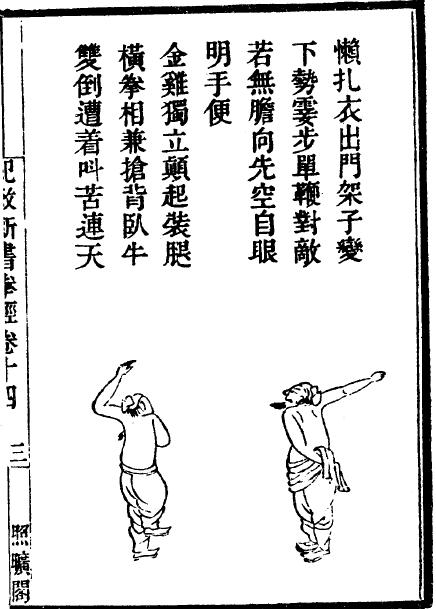 懶扎衣出門架子變
下勢霎步單鞭對敵
若無膽向先空自眼
明手便
金雞獨立顛起裝腿
橫拳相兼搶背臥牛
雙倒遭着叫苦連天
紀效新書拳經卷十四 三 照曠閣